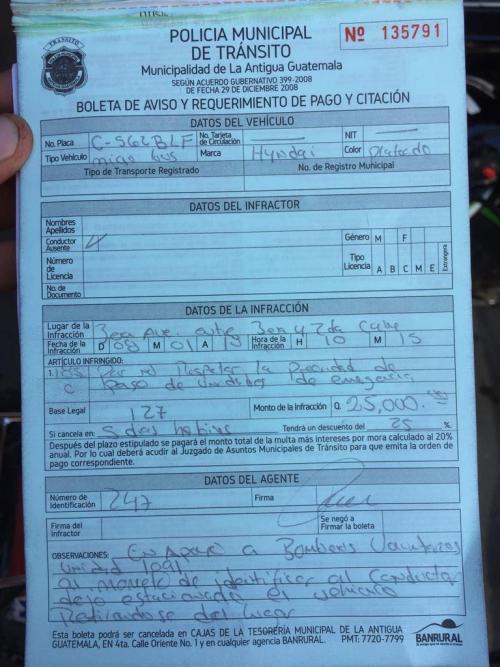 POLICIA MUNICIPAL
DE TRÁNSITO
Nº 135791
Municipalidad de La Antigua Guatemala
SEGÚN ACUERDO GUBERNATIVO 399-2008
DE FECHA 29 DE DICIEMBRE 2008
BOLETA DE AVISO Y REQUERIMIENTO DE PAGO Y CITACIÓN
DATOS DEL VEHÍCULO
No. Placa C-562BLF No. Tarjeta de Circulación NIT
Tipo Vehículo micro bus Marca Hyndai Color Plateado
Tipo de Transporte Registrado No. de Registro Municipal
DATOS DEL INFRACTOR
Nombres
Apellidos
Conductor Ausente Género M F
Número de Licencia Tipo Licencia A B C M E Extranjera
No. de Documento
DATOS DE LA INFRACCIÓN
Lugar de la Infracción 3era Ave. entre 3era y 2da Calle
Fecha de la Infracción D 08 M 01 A Hora de la Infracción H 10 M 15
ARTÍCULO INFRINGIDO:
Por no Respetar la Prioridad de
C Paso de Unidades de emergencia
Base Legal 127 Monto de la Infracción Q. 25,000.
Si cancela en: 5 dias habiles Tendrá un descuento del 25 %.
Después del plazo estipulado se pagará el monto total de la multa más intereses por mora calculado al 20%
anual. Por lo cual deberá acudir al Juzgado de Asuntos Municipales de Tránsito para que emita la orden de
pago correspondiente.
DATOS DEL AGENTE
Número de Identificación 247 Firma
Firma del Infractor Se negó a Firmar la boleta
OBSERVACIONES: a Bomberos Voluntarios
Unidad 1091.
al momento de identificar al Conductor
dejo estacionado el vehiculo
Retirandose del lugar
Esta boleta podrá ser cancelada en CAJAS DE LA TESORERÍA MUNICIPAL DE LA ANTIGUA
GUATEMALA, EN 4ta. Calle Oriente No. 1 y en cualquier agencia BANRURAL. PMT: 7720-7799
BANRURAL